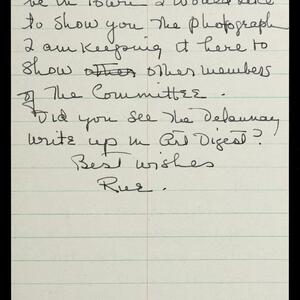 be in town I would like
to show you the photograph
I am keeping it here to
show other other members
of The Committee.
Did you see The Delaunay
write up in Art Digest?
Best wishes
Rue.